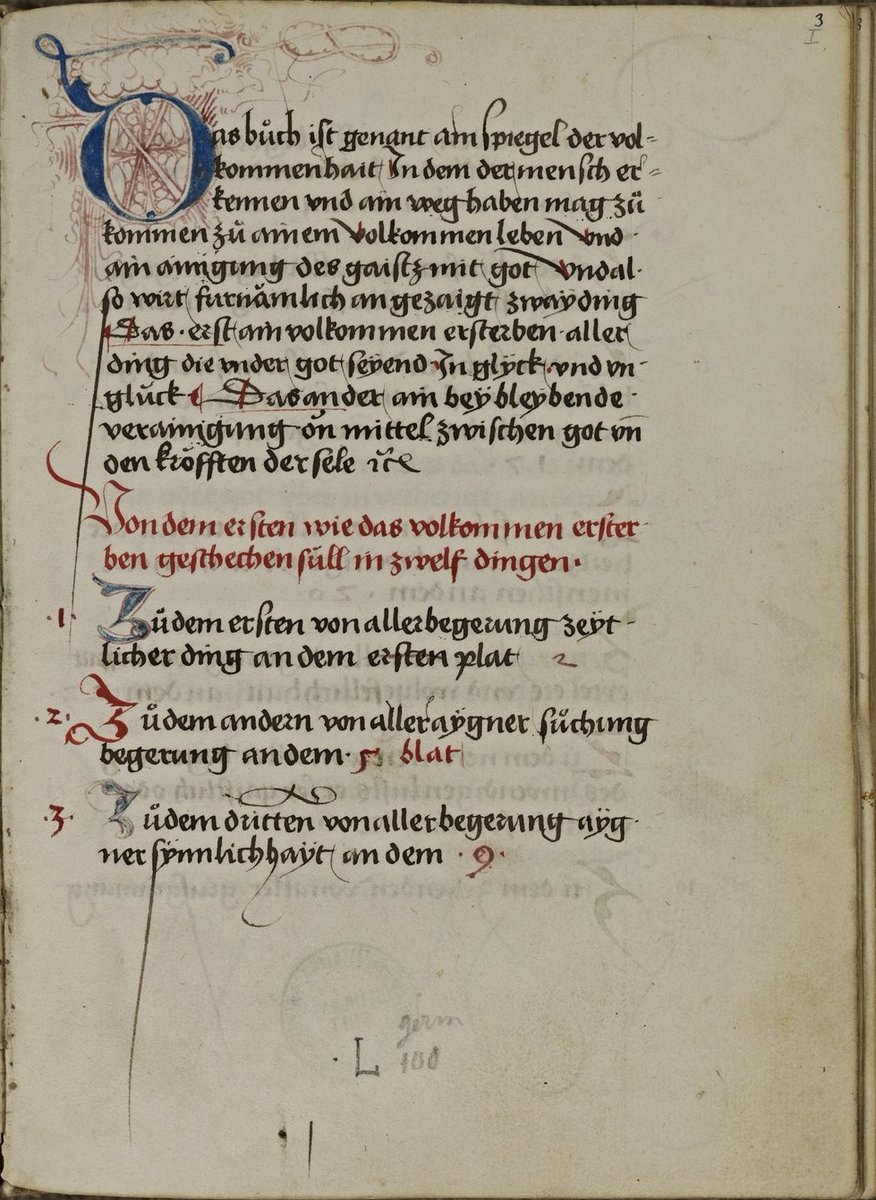 3
I
Das bůch ist genant ain spiegel der vol=
kommenhait In dem der mensch er=
kennen vnd ain weg haben mag zů
kommen zů ainem volkommen leben vnd
ain ainigung des gaistz mit got vnd al-
so wirt furnämlich angezaigt zway ding
Das erst ain volkommen ersterben aller
ding die vnder got seyend In glyck vnd vn-
gluck Das ander ain beybleybende
verainigung on mittel zwischen got vn̄
den kröfften der sele ꝛc̄
Von dem ersten wie das volkommen erster-
ben geschechen sull in zwelf dingen.
.1. Zů dem ersten von aller begerung zeyt-
licher ding an dem ersten plat 2
.2. Zů dem andern von aller aygner sůchung
begerung an dem 5 blat
.3. Zů dem dritten von aller begerung ayg-
ner synnlichhayt an dem .9.
germ
. L 100